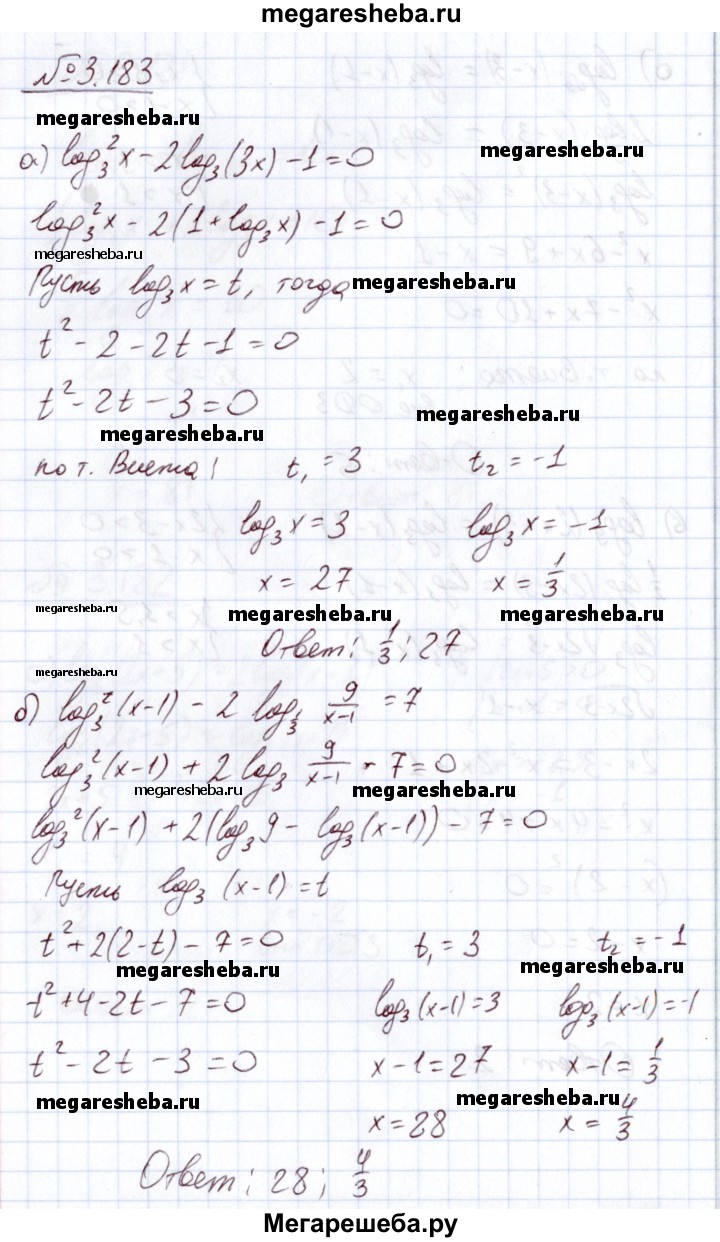 megaresheba.ru
№3.183
megaresheba.ru
а) log₃²x − 2log₃(3x) − 1 = 0
log₃²x − 2(1 + log₃x) − 1 = 0
megaresheba.ru
Пусть log₃x = t, тогда megaresheba.ru
t² − 2 − 2t − 1 = 0
t² − 2t − 3 = 0
megaresheba.ru megaresheba.ru
по т. Виета: t₁ = 3 t₂ = −1
log₃x = 3 log₃x = −1
x = 27 x = 1/3
megaresheba.ru megaresheba.ru megaresheba.ru
Ответ: 1/3; 27
megaresheba.ru
б) log₃²(x−1) − 2 log_{1/3} 9/(x−1) = 7
log₃²(x−1) + 2 log₃ 9/(x−1) − 7 = 0
megaresheba.ru megaresheba.ru
log₃²(x−1) + 2(log₃9 − log₃(x−1)) − 7 = 0
Пусть log₃(x−1) = t
t² + 2(2−t) − 7 = 0 t₁ = 3 t₂ = −1
megaresheba.ru megaresheba.ru megaresheba.ru
t² + 4 − 2t − 7 = 0 log₃(x−1) = 3 log₃(x−1) = −1
t² − 2t − 3 = 0 x − 1 = 27 x − 1 = 1/3
megaresheba.ru megaresheba.ru
x = 28 x = 4/3
Ответ: 28; 4/3
Мегарешеба.ру